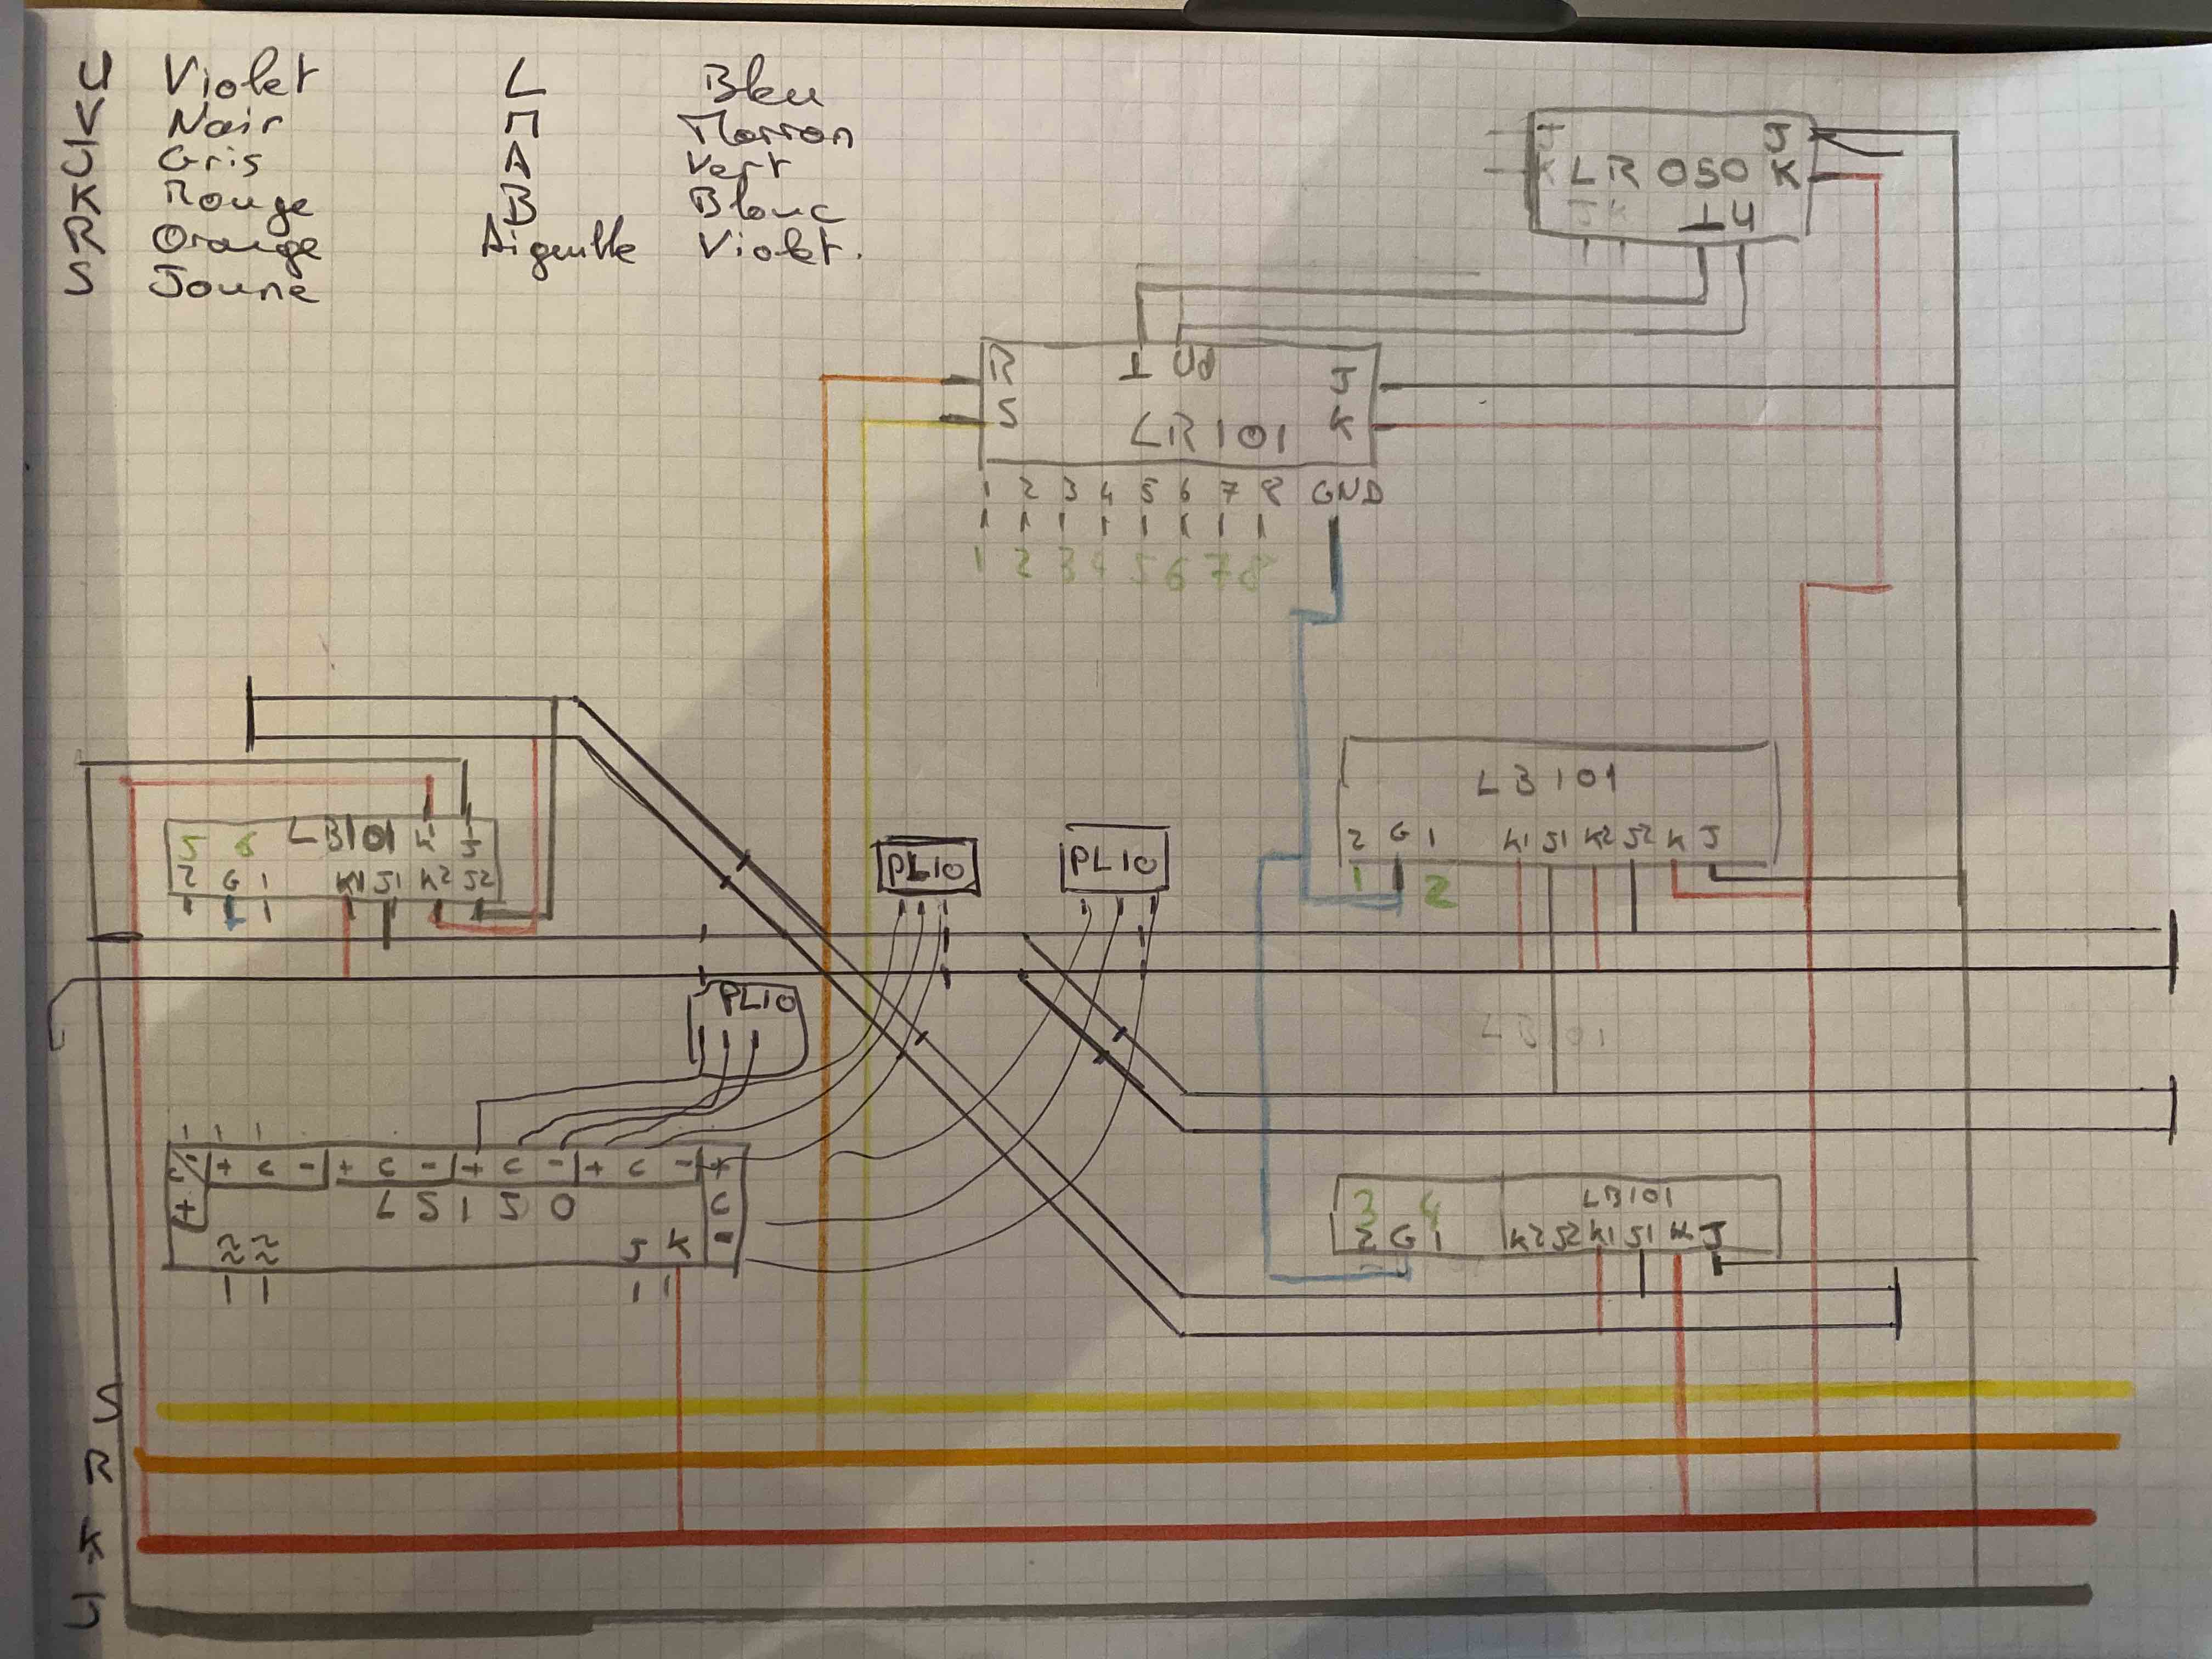 U Violet L Bleu
V Noir M Marron
J Gris A Vert
K Rouge B Blanc
R Orange Aiguille Violet.
S Jaune
J J
K LR 050 K
J K ⊥ U
R ⊥ Ud J
S LR101 K
1 2 3 4 5 6 7 8 GND
1 2 3 4 5 6 7 8
LB101
2 G 1 K1 J1 K2 J2 K J
1 2
5 6 LB101 K J
2 G 1 K1 J1 K2 J2
PL10
PL10
PL10
LB101
C - + C - + C - + C - + C - +
+ LS150 C
≈ ≈ J K -
3 4 LB101
2 G 1 K2 J2 K1 J1 K J
S
R
K
J